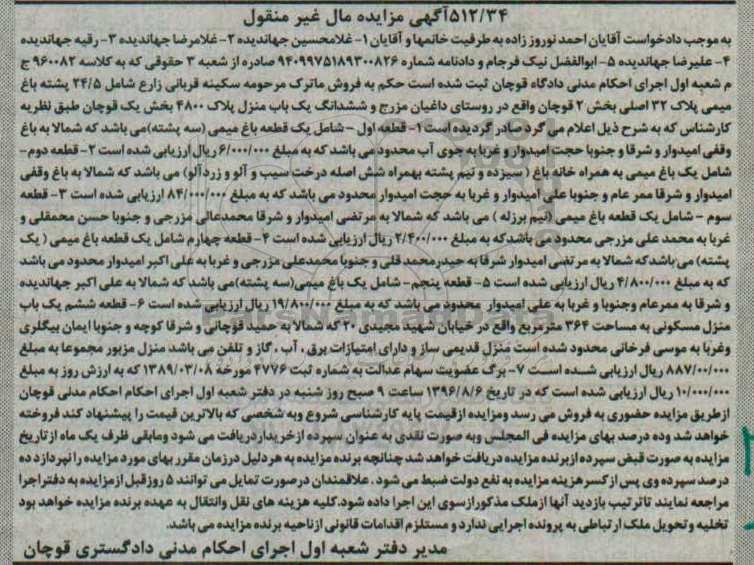 ۵۱۲/۳۴آگهی مزایده مال غیر منقول
به موجب دادخواست آقایان احمد نوروز زاده به طرفیت خانمها و آقایان ۱- غلامحسین جهاندیده ۲- غلامرضا جهاندیده ۳- رقیه جهاندیده
۴- علیرضا جهاندیده ۵- ابوالفضل نیک فرجام و دادنامه شماره ۹۴۰۹۹۷۵۱۸۹۳۰۰۸۲۶ صادره از شعبه ۳ حقوقی که به کلاسه ۹۶۰۰۸۲ ج
م شعبه اول اجرای احکام مدنی دادگاه قوچان ثبت شده است حکم به فروش ماترک مرحومه سکینه قربانی زارع شامل ۲۴/۵ پشته باغ
میمی پلاک ۳۲ اصلی بخش ۲ قوچان واقع در روستای داغیان مزرج و ششدانگ یک باب منزل پلاک ۴۸۰۰ بخش یک قوچان طبق نظریه
کارشناس که به شرح ذیل اعلام می گرد صادر گردیده است ۱- قطعه اول - شامل یک قطعه باغ میمی (سه پشته)می باشد که شمالا به باغ
وقفی امیدوار و شرقا و جنوبا حجت امیدوار و غربا به جوی آب محدود می باشد که به مبلغ ۶/۰۰۰/۰۰۰ ریال ارزیابی شده است ۲- قطعه دوم-
شامل یک باغ میمی به همراه خانه باغ ( سیزده و نیم پشته بهمراه شش اصله درخت سیب و آلو و زردآلو) می باشد که شمالا به باغ وقفی
امیدوار و شرقا ممر عام و جنوبا علی امیدوار و غربا به حجت امیدوار محدود می باشد که به مبلغ ۸۴/۰۰۰/۰۰۰ ارزیابی شده است ۳- قطعه
سوم - شامل یک قطعه باغ میمی (نیم برزله ) می باشد که شمالا به مرتضی امیدوار و شرقا محمدعالی مزرجی و جنوبا حسن محمقلی و
غربا به محمد علی مزرجی محدود می باشدکه به مبلغ ۲/۴۰۰/۰۰۰ ریال ارزیابی شده است ۴- قطعه چهارم شامل یک قطعه باغ میمی ( یک
پشته) می باشدکه شمالا به مرتضی امیدوار شرقا به حیدرمحمد قلی و جنوبا محمدعلی مزرجی و غربا به علی اکبر امیدوار محدود می باشد
که به مبلغ ۴/۸۰۰/۰۰۰ ریال ارزیابی شده است ۵- قطعه پنجم- شامل یک باغ میمی(سه پشته)می باشد که شمالا به علی اکبر جهاندیده
و شرقا به ممرعام وجنوبا و غربا به علی امیدوار محدود می باشد که به مبلغ ۱۹/۸۰۰/۰۰۰ ریال ارزیابی شده است ۶- قطعه ششم یک باب
منزل مسکونی به مساحت ۳۶۴ مترمربع واقع در خیابان شهید مجیدی ۲۰ که شمالا به حمید قوچانی و شرقا کوچه و جنوبا ایمان بیگلری
وغربا به موسی فرخانی محدود شده است منزل قدیمی ساز و دارای امتیازات برق ، آب ، گاز و تلفن می باشد منزل مزبور مجموعا به مبلغ
۸۸۷/۰۰/۰۰۰ ریال ارزیابی شده است ۷- برگ عضویت سهام عدالت به شماره ثبت ۴۷۷۶ مورخه ۱۳۸۹/۰۳/۰۸ که به ارزش روز به مبلغ
۱۰/۰۰۰/۰۰۰ ریال ارزیابی شده است که در تاریخ ۱۳۹۶/۸/۶ ساعت ۹ صبح روز شنبه در دفتر شعبه اول اجرای احکام احکام مدنی قوچان
ازطریق مزایده حضوری به فروش می رسد ومزایده ازقیمت پایه کارشناسی شروع وبه شخصی که بالاترین قیمت را پیشنهاد کند فروخته
خواهد شد وده درصد بهای مزایده فی المجلس وبه صورت نقدی به عنوان سپرده ازخریداردریافت می شود ومابقی ظرف یک ماه ازتاریخ
مزایده به صورت قبض سپرده ازبرنده مزایده دریافت خواهد شد چنانچه برنده مزایده به هردلیل درزمان مقرر بهای مورد مزایده را نپردازد ده
درصد سپرده وی پس از کسر هزینه مزایده به نفع دولت ضبط می شود . علاقمندان درصورت تمایل می توانند ۵ روزقبل ازمزایده به دفتراجرا
مراجعه نمایند تاترتیب بازدید آنها ازملک مذکورازسوی این اجرا داده شود.کلیه هزینه های نقل وانتقال به عهده برنده مزایده خواهد بود
تخلیه وتحویل ملک ارتباطی به پرونده اجرایی ندارد و مستلزم اقدامات قانونی ازناحیه برنده مزایده می باشد.
مدیر دفتر شعبه اول اجرای احکام مدنی دادگستری قوچان
ParsNamadData